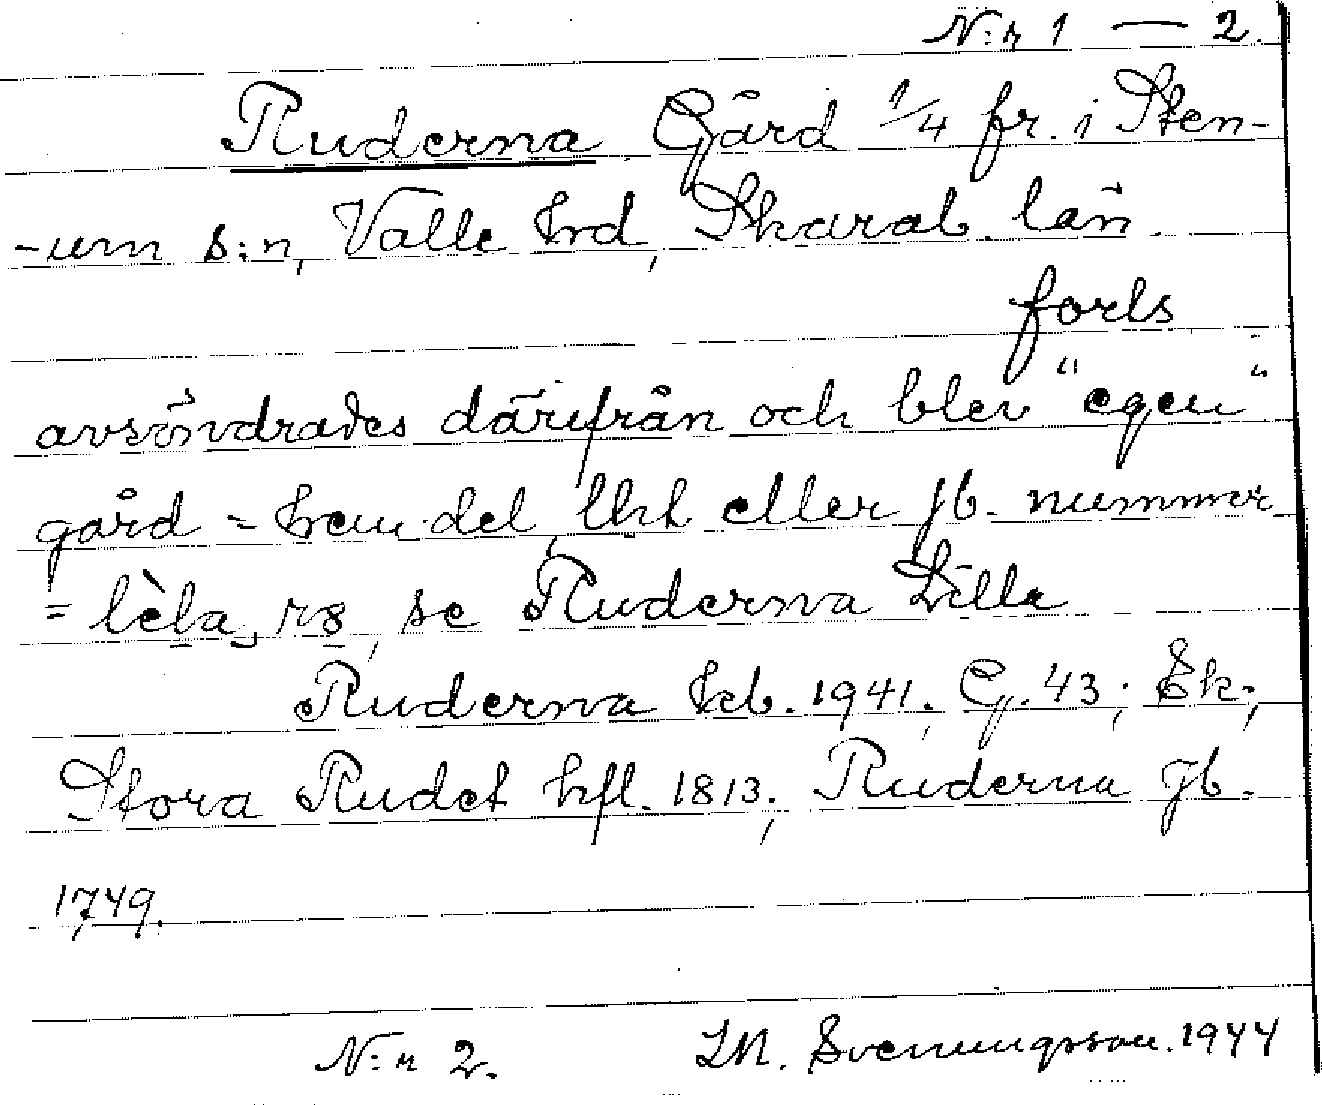 N:r 1 — 2.
Ruderna Gård 1/4 fr. i Sten-
-um s:n, Valle hrd, Skarab. län.
forts
avsöndrades därifrån och blev "egen"
gård = hem.del, eller jb. nummer
= lèla, se Ruderna Lilla
Ruderna kb. 1941; G. 43; Ek;
Stora Rudet hfl. 1813; Ruderna Jb.
1749.
N:r 2. Svenungsson. 1944